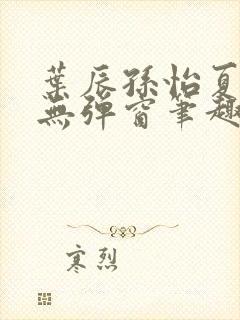 葉辰孫怡夏
無彈窗筆趣
寒烈